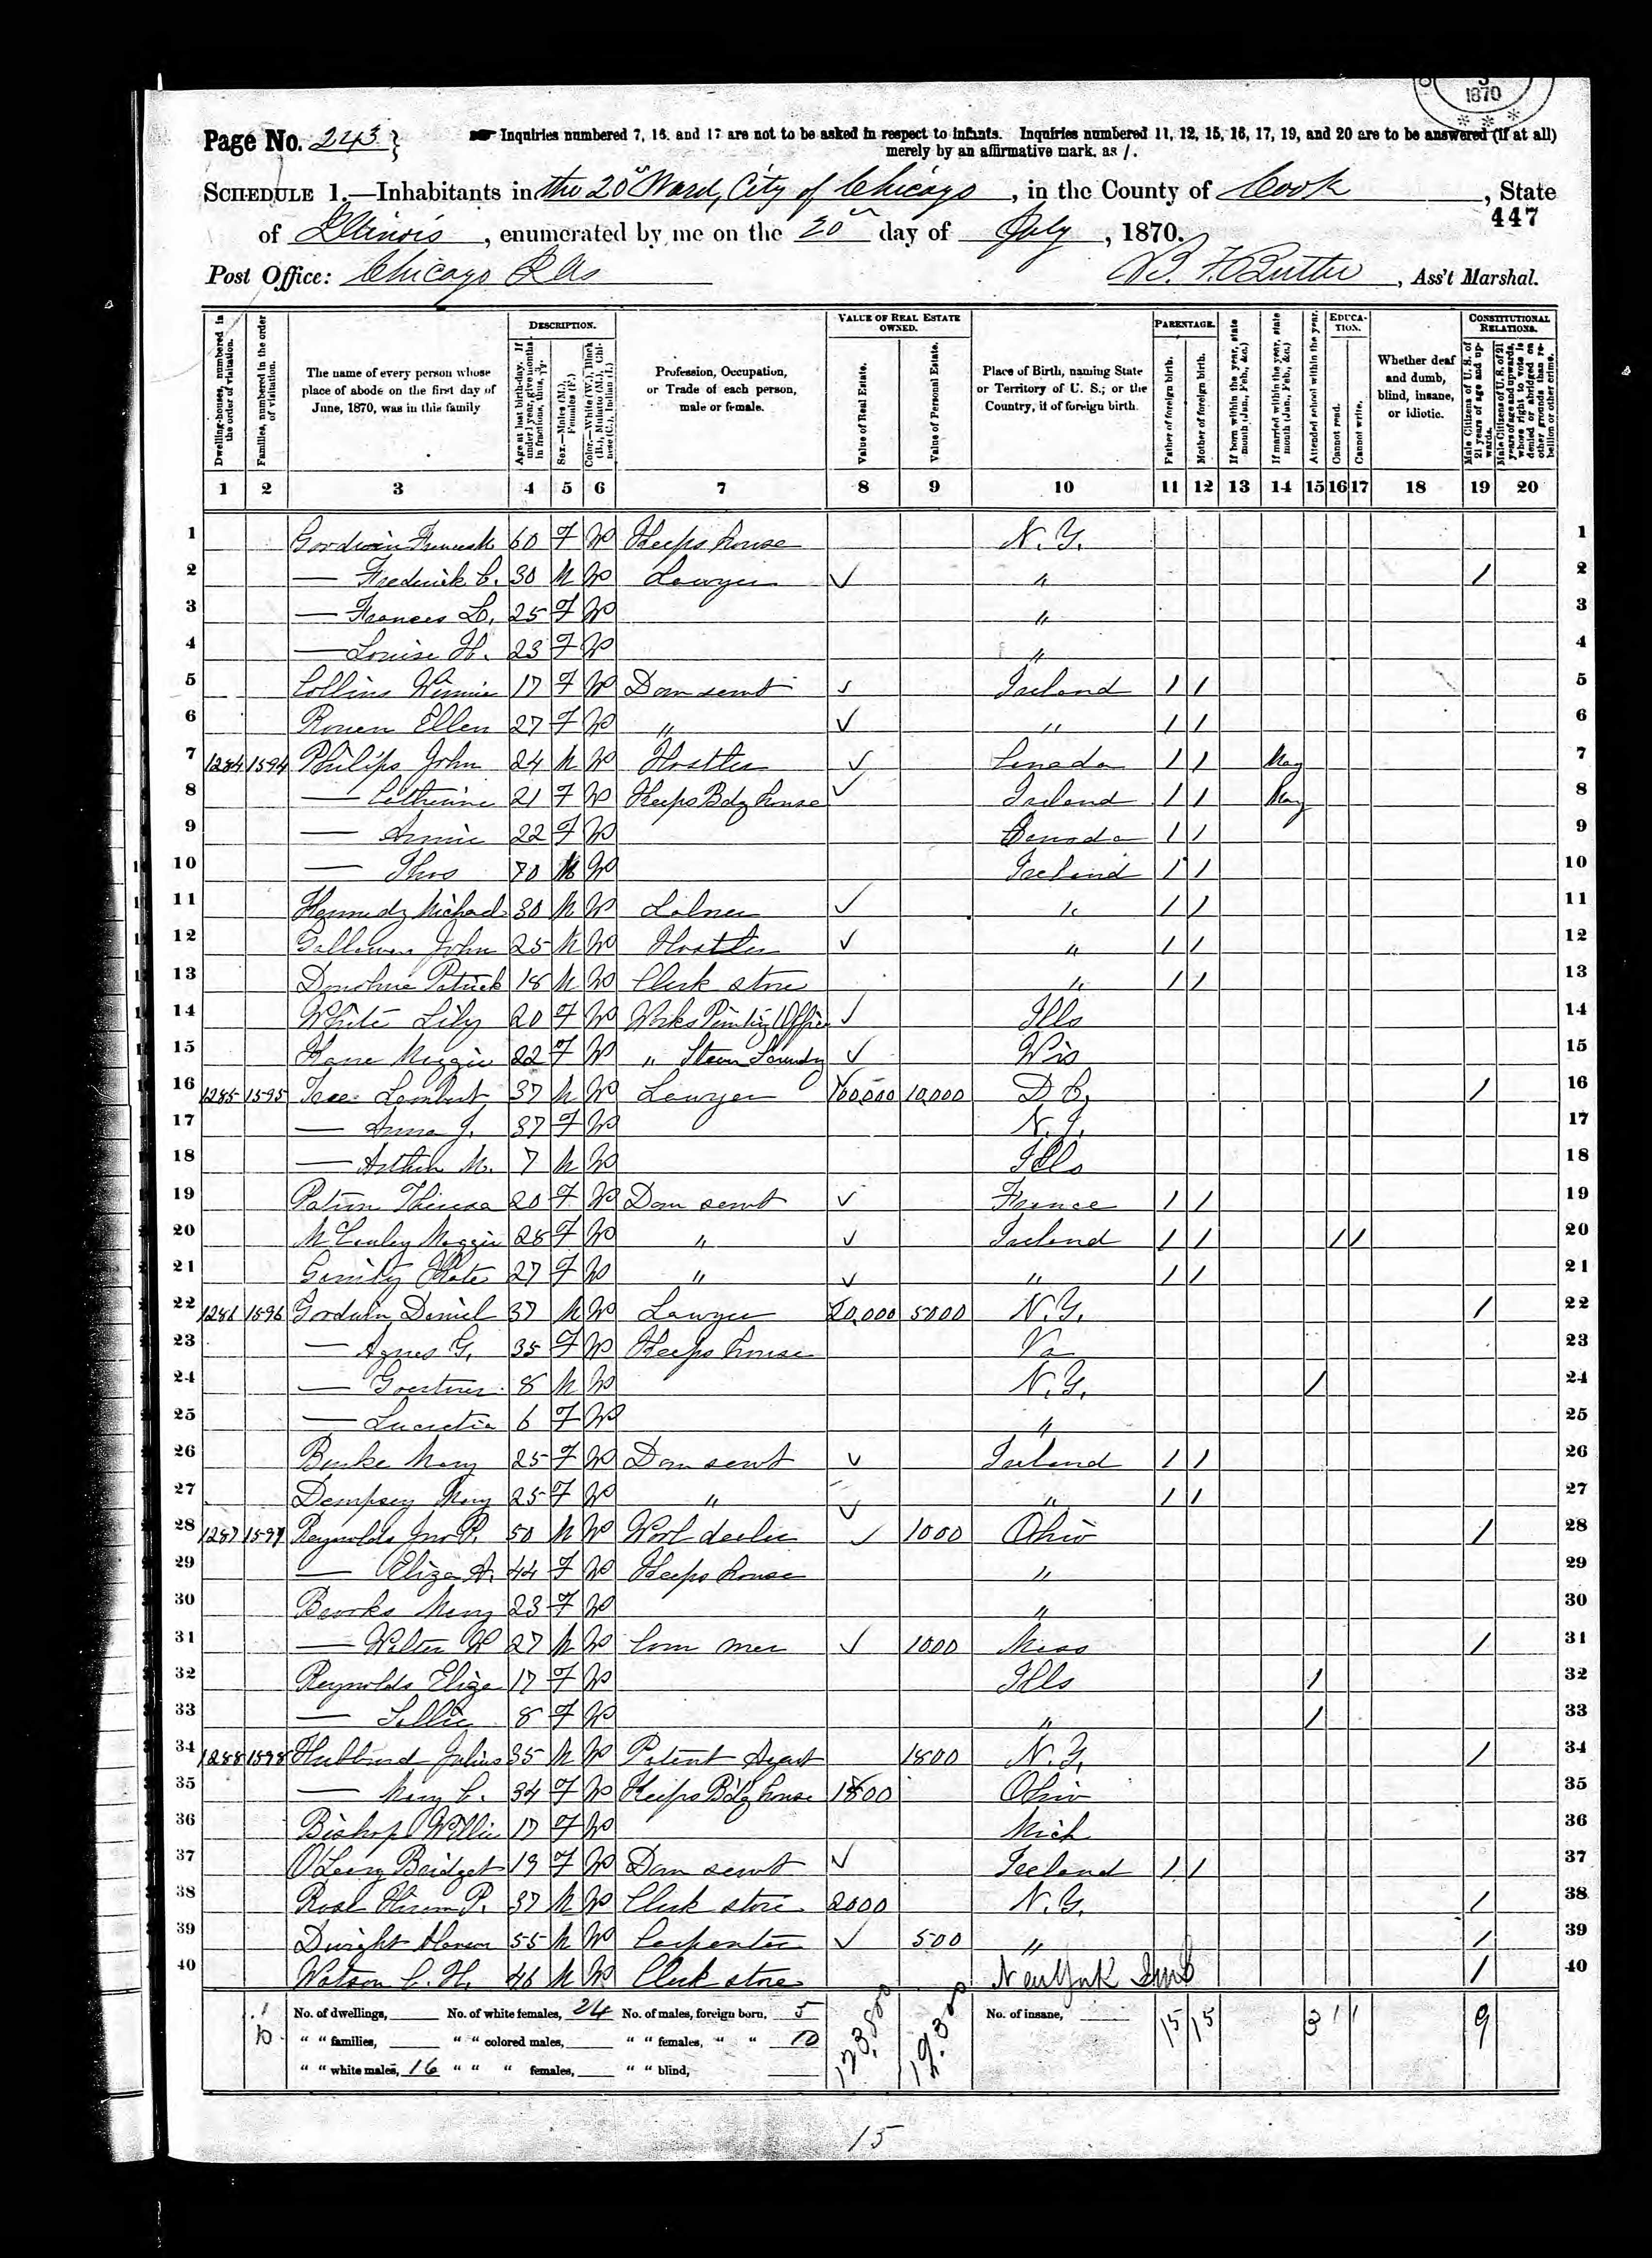 1870
Page No. 243
Inquiries numbered 7, 16, and 17 are not to be asked in respect to infants. Inquiries numbered 11, 12, 15, 16, 17, 19, and 20 are to be answered (if at all)
merely by an affirmative mark, as /.
SCHEDULE 1.—Inhabitants in the 20" Ward, City of Chicago, in the County of Cook, State
447
of Illinois, enumerated by me on the 20" day of July, 1870.
Post Office: Chicago Ills , Ass't Marshal.
Dwelling-houses, numbered in the order of visitation.
Families, numbered in the order of visitation.
The name of every person whose place of abode on the first day of June, 1870, was in this family
DESCRIPTION.
Age at last birth-day. If under 1 year, give months in fractions, thus,
Sex.—Males (M.), Females (F.)
Color.—White (W.), Black (B.), Mulatto (M.), Chinese (C.), Indian (I.)
Profession, Occupation, or Trade of each person, male or female.
VALUE OF REAL ESTATE OWNED.
Value of Real Estate.
Value of Personal Estate.
Place of Birth, naming State or Territory of U. S.; or the Country, if of foreign birth.
PARENTAGE.
Father of foreign birth.
Mother of foreign birth.
If born within the year, state month (Jan., Feb., &c.)
If married within the year, state month (Jan., Feb., &c.)
Attended school within the year.
EDUCATION.
Cannot read.
Cannot write.
Whether deaf and dumb, blind, insane, or idiotic.
CONSTITUTIONAL RELATIONS.
Male Citizens of U. S. of 21 years of age and upwards.
Male Citizens of U. S. of 21 years of age and upwards, whose right to vote is denied or abridged on other grounds than rebellion or other crime.
1 2 3 4 5 6 7 8 9 10 11 12 13 14 15 16 17 18 19 20
1 Goodwin 60 F W Keeps house N.Y. 1
2 — Frederick C. 30 M W Lawyer ✓ " / 2
3 — Frances L. 25 F W " 3
4 — Louise H. 23 F W " 4
5 Collins Winnie 17 F W Dom servt ✓ Ireland / / 5
6 Ellen 27 F W " ✓ " / / 6
7 1284 1594 Philips John 24 M W Hostler ✓ Canada / / May 7
8 — Catherine 21 F W Keeps Bdg house ✓ Ireland / / May 8
9 — Annie 22 F W Canada / / 9
10 — Thos 70 M W Ireland / / 10
11 Kennedy Michael 30 M W Laborer ✓ " / / 11
12 John 25 M W Hostler ✓ " / / 12
13 Donohue Patrick 18 M W Clerk store " / / 13
14 White Lily 20 F W Works Printing Office ✓ Ills 14
15 Kane Maggie 22 F W " Steam Laundry ✓ Wis 15
16 1285 1595 Tree Lambert 37 M W Lawyer 100,000 10,000 D C, / 16
17 — Anna J. 37 F W N.J. 17
18 — Arthur M. 7 M W Ills 18
19 Theresa 20 F W Dom servt ✓ France / / 19
20 Maggie 28 F W " ✓ Ireland / / / / 20
21 Kate 27 F W " ✓ " / / 21
22 1286 1596 Goodwin Daniel 37 M W Lawyer 20,000 5000 N.Y. / 22
23 — Agnes G. 35 F W Keeps house Va 23
24 — 8 M W N.Y. / 24
25 — Lucretia 6 F W " 25
26 Burke Mary 25 F W Dom servt ✓ Ireland / / 26
27 Dempsey Mary 25 F W " ✓ " / / 27
28 1287 1597 Reynolds Jno P. 50 M W Wool dealer ✓ 1000 Ohio / 28
29 — Eliza A. 44 F W Keeps house " 29
30 Brooks Mary 23 F W " 30
31 — Walter W 27 M W Com mer ✓ 1000 Mass / 31
32 Reynolds Eliza 17 F W Ills / 32
33 — Lillie 8 F W " / 33
34 1288 1598 Hubbard Julius 35 M W Patent Agent 1800 N.Y. / 34
35 — Mary C. 34 F W Keeps Bdg house 1800 Ohio 35
36 Bishop Willie 17 F W Mich 36
37 O'Leary Bridget 19 F W Dom servt ✓ Ireland / / 37
38 Hiram P. 37 M W Clerk store 2000 N.Y. / 38
39 Dwight 55 M W Carpenter ✓ 500 " / 39
40 Watson C. H. 46 M W Clerk store New York / 40
No. of dwellings, No. of white females, 24 No. of males, foreign born, 5 No. of insane,
" " families, " " colored males, " " females, " " 10
" " white males, 16 " " " females, " " blind,
123,800 19,300 15 15 3 1 1 9
15